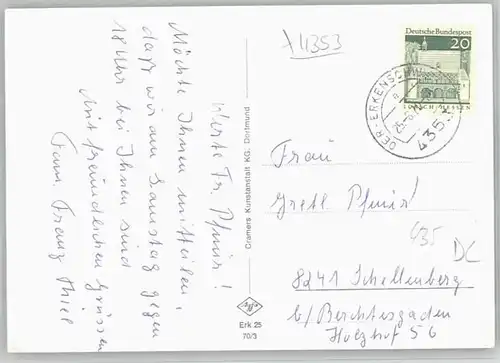 +4353
Werte Fr. Pfnür!
Möchte Ihnen mitteilen,
daß wir am Samstag gegen
18 Uhr bei Ihnen sind
Mit freundlichen Grüssen
Fam. Franz Thiel
Cramers Kunstanstalt KG, Dortmund
Erk 25
70/3
Deutsche Bundespost
20
LORSCH/HESSEN
OER-ERKENSCHWICK
4353
Frau
Gretl Pfnür
8241 Schellenberg
b/ Berchtesgaden
Holzhof 56
435
DC